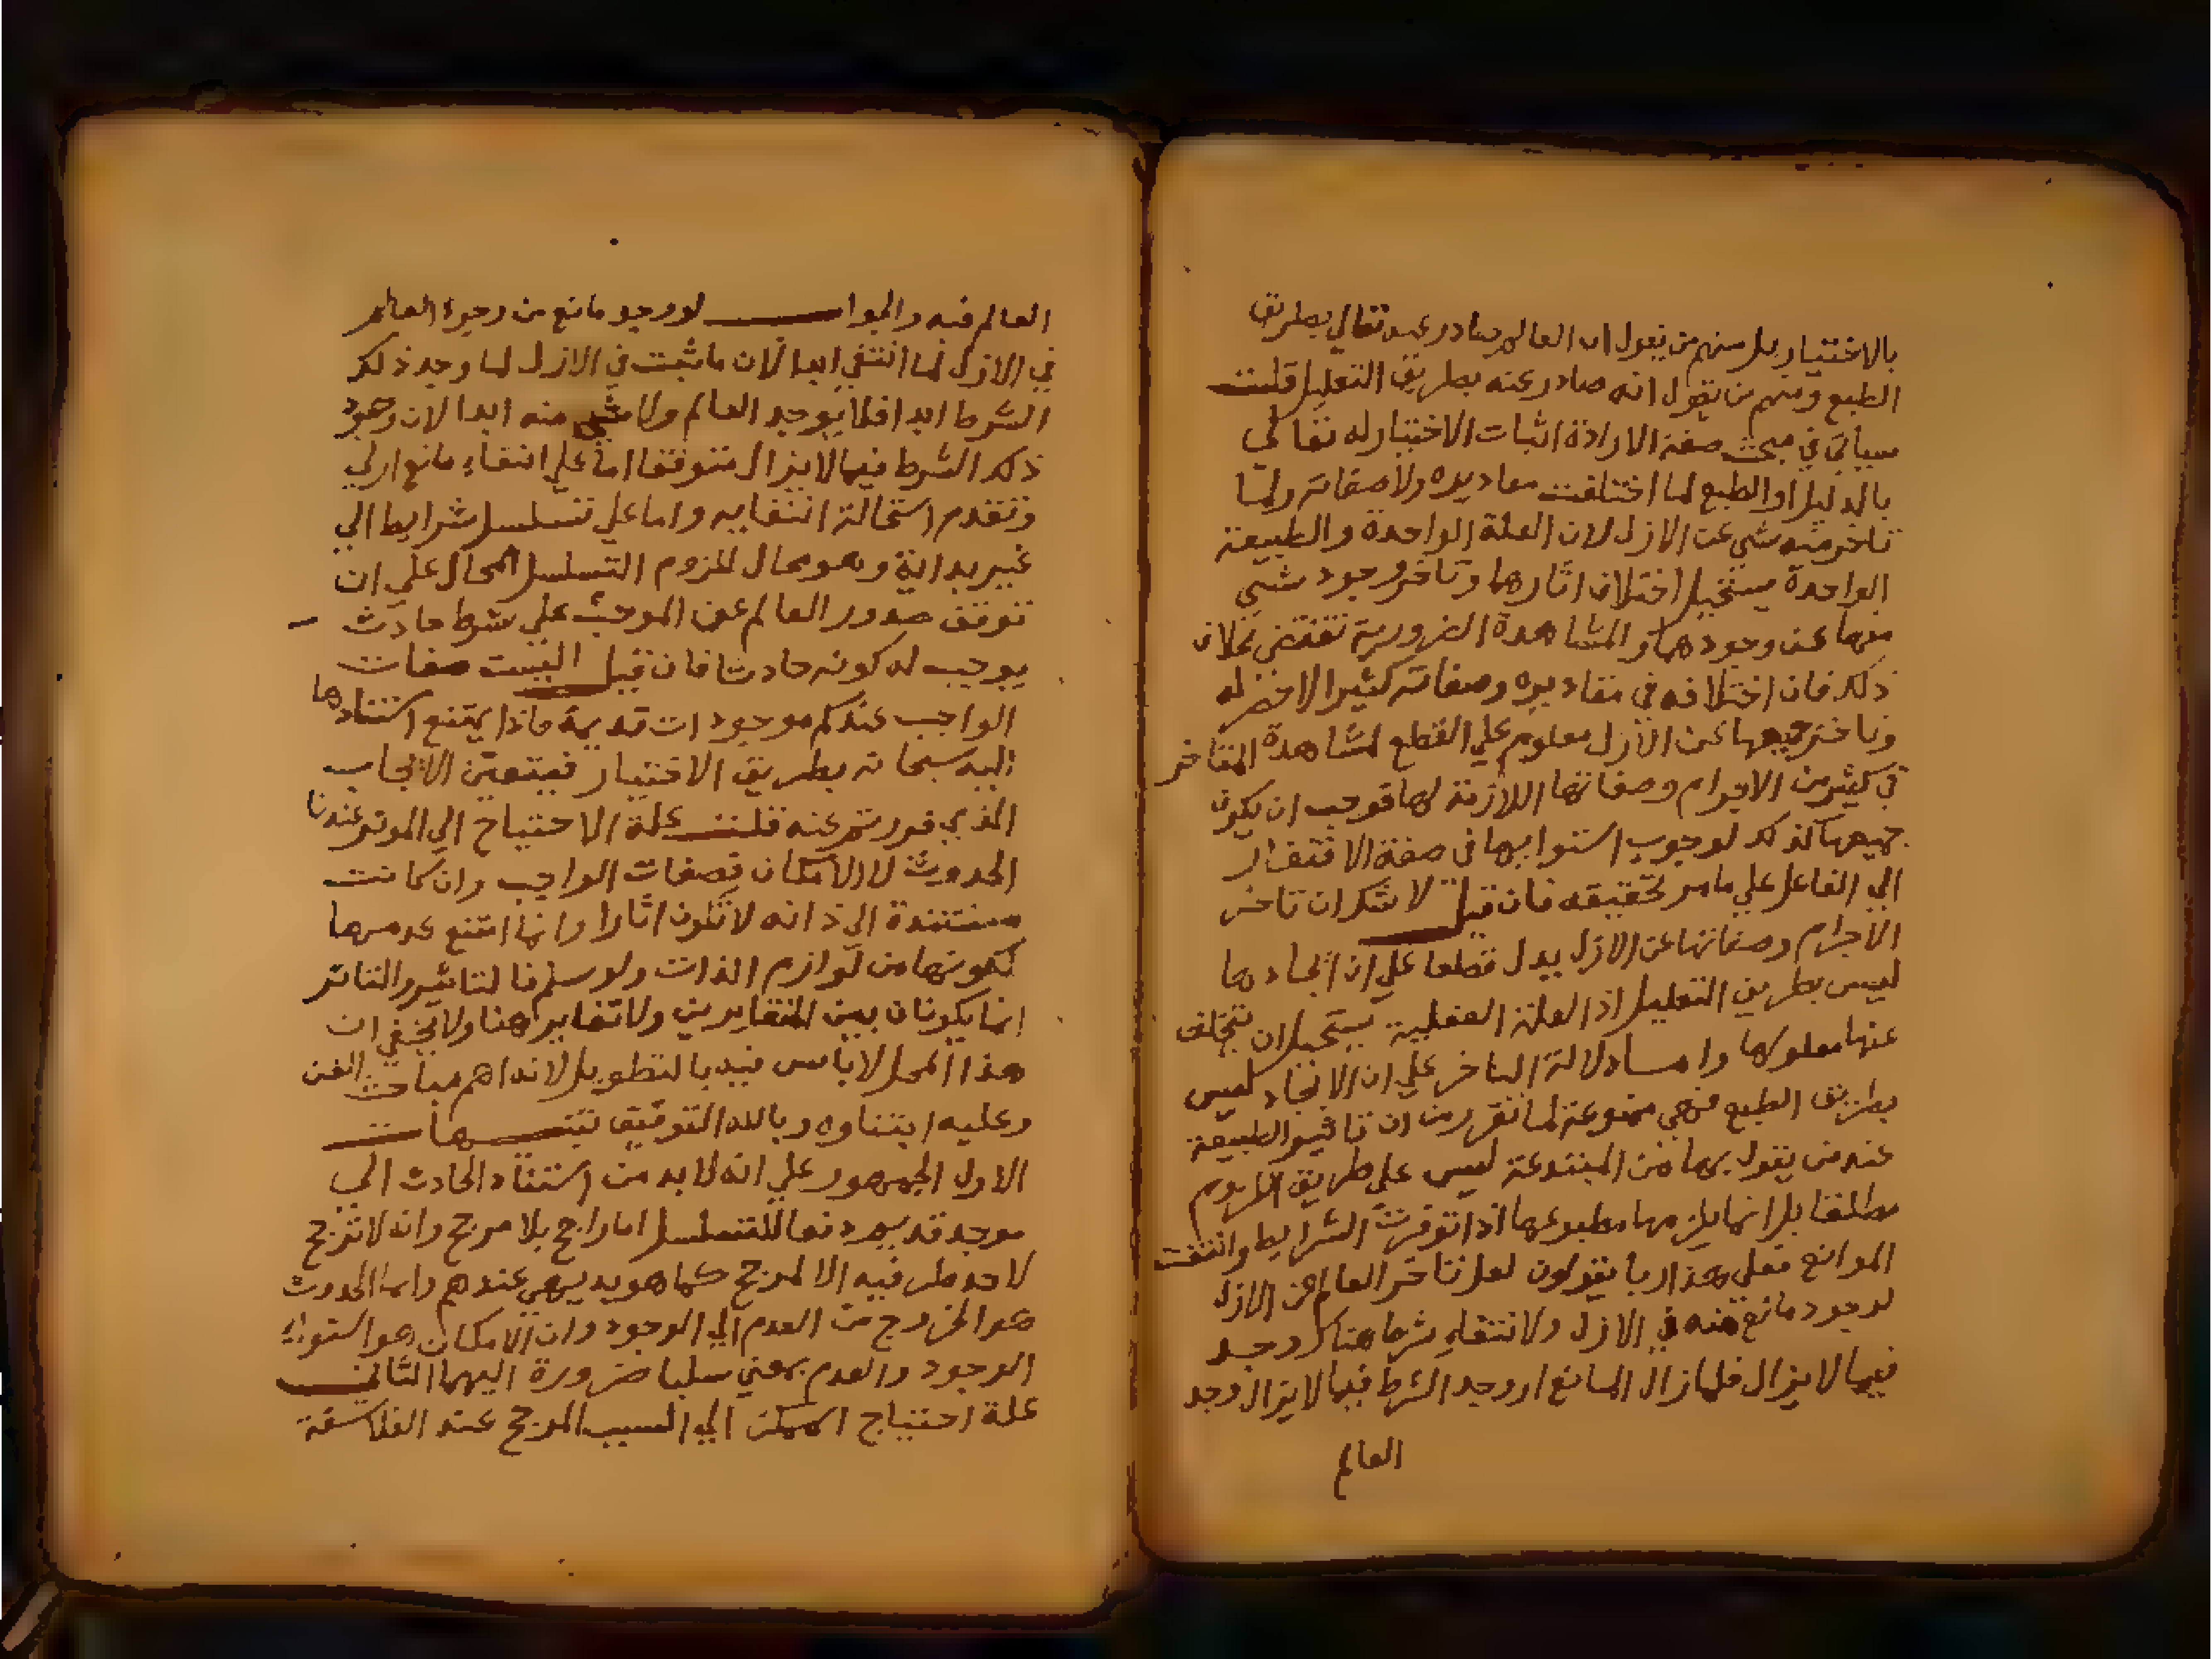 بالاختيار بل منهم من يقول ان العالم صادر عنه تعالي بطريق
الطبع ومنهم من يقول انه صادر عنه بطريق التعليل قلت
سياتي في مبحث صفة الارادة اثبات الاختيار له تعالي
بالدليل او الطبع لما اختلفت مقاديره ولا صفاته ولما
تاخر منه شي عن الازل لان العلة الواحدة والطبيعة
الواحدة يستحيل اختلاف اثارها وتاخر وجود شيي
منها عن وجودها والمشاهدة الضرورية تقتضي بخلاف
ذلك فان اختلافه في مقاديره وصفاته كثيرا لاخفا له
وتاخر جميعها عن الازل معلوم علي القطع لمشاهدة المتاخر
في كثير من الاجرام وصفاتها اللازمة لها فوجب ان يكون
جميعها كذلك لوجوب استوايها في صفة الافتقار
الي الفاعل علي ما مر تحقيقه فان قيل لا شك ان تاخر
الاجرام وصفاتها عن الازل يدل قطعا علي ان ايجادها
ليس بطريق التعليل اذ العلة العقلية يستحيل ان يتخلف
عنها معلولها واما دلالة التاخر علي ان الايجاد ليس
بطريق الطبع فهي ممنوعة لما تقرر من ان تاثير الطبيعة
عند من يقول بها من المبتدعة ليس علي طريق اللزوم
مطلقا بل انما يلزمها مطبوعها اذا توفرت الشرايط وانتفت
الموانع فعلي هذا ربما يقولون لعل تاخر العالم عن الازل
لوجود مانع منه في الازل ولانتفاء شرط هناك وجد
فيما لا يزال فلما زال المانع او وجد الشرط فيما لا يزال وجد
العالم
العالم فيه والجواب لو وجد مانع من وجود العالم
في الازل لما انتفي ابدا لان ما ثبت في الازل لما وجد ذلك
الشرط ابدا فلا يوجد العالم ولا شي منه ابدا لان وجود
ذلك الشرط فيما لا يزال متوقفا اما علي انتفاء مانع ازلي
وتقدم استحالة انتفايه واما علي تسلسل شرايط الي
غير بداية وهو محال للزوم التسلسل المحال علي ان
توقف صدور العالم عن الموجب علي شرط حادث
يوجب له كونه حادثا فان قيل اليست صفات
الواجب عندكم موجودات قديمة فاذا يمتنع استنادها
اليه سبحانه بطريق الاختيار فيتعين الايجاب
الذي فررتم عنه قلت علة الاحتياج الي الموثر عندنا
الحدوث لا الامكان فصفات الواجب وان كانت
مستندة الي ذاته لا تكون اثارا وانما امتنع عدمها
لكونها من لوازم الذات ولو سلم فالتاثير والتاثر
انما يكونان بين المتغايرين ولا تغاير هنا ولا يخفي ان
هذا المحل لا باس فيه بالتطويل لانه اهم مباحث الفن
وعليه ابتناوه وبالله التوفيق تنبيهات
الاول الجمهور علي انه لا بد من استناد الحادث الي
موجد قديم دفعا للتسلسل امارا جح بلا مرجح وانه لا ترجح
لاحد طرفيه الا لمرجح كما هو بديهي عندهم واما الحدوث
هو الخروج من العدم الي الوجود وان الامكان هو استواء
الوجود والعدم بمعني سلبا ضرورة اليهما الثاني
علة احتياج الممكن الي السبب المرجح عند الفلاسفة